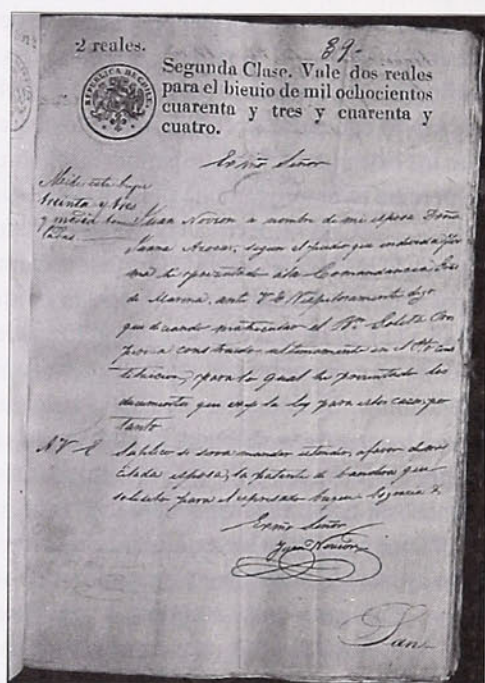 2 reales.
89-
REPUBLICA DE CHILE.
Segunda Clase. Vale dos reales
para el bienio de mil ochocientos
cuarenta y tres y cuarenta y
cuatro.
Exmo Señor
Mide este buque
treinta y tres
y media tone
ladas.
Juan Novion a nombre de mi esposa Doña
Juana Aroca, segun el poder que en devida for
ma he presentado a la Comandancia Gral
de Marina, ante V. E. respetuosamente digo
que deseando matricular el Goleta
construido ultimamente en el
para lo qual he presentado los
documentos que exije la ley para estos casos, por
tanto
A V E Suplico se sirva mandar estender, a favor de mi
citada esposa, la patente de bandera que
solicito para el espresado buque
Exmo Señor
Juan Novion
San